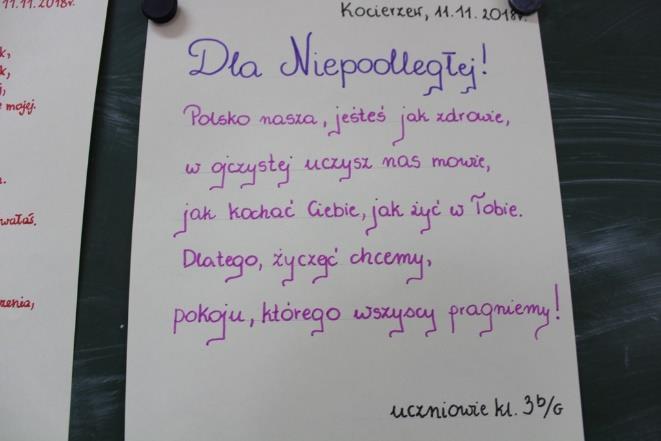 11.11.2018r.
k,
k,
j,
e mojej.
wałaś.
zenia,
Kocierzew, 11.11.2018r.
Dla Niepodległej!
Polsko nasza, jesteś jak zdrowie,
w ojczystej uczysz nas mowie,
jak kochać Ciebie, jak żyć w Tobie.
Dlatego, życzęć chcemy,
pokoju, którego wszyscy pragniemy!
uczniowie kl. 3b/G